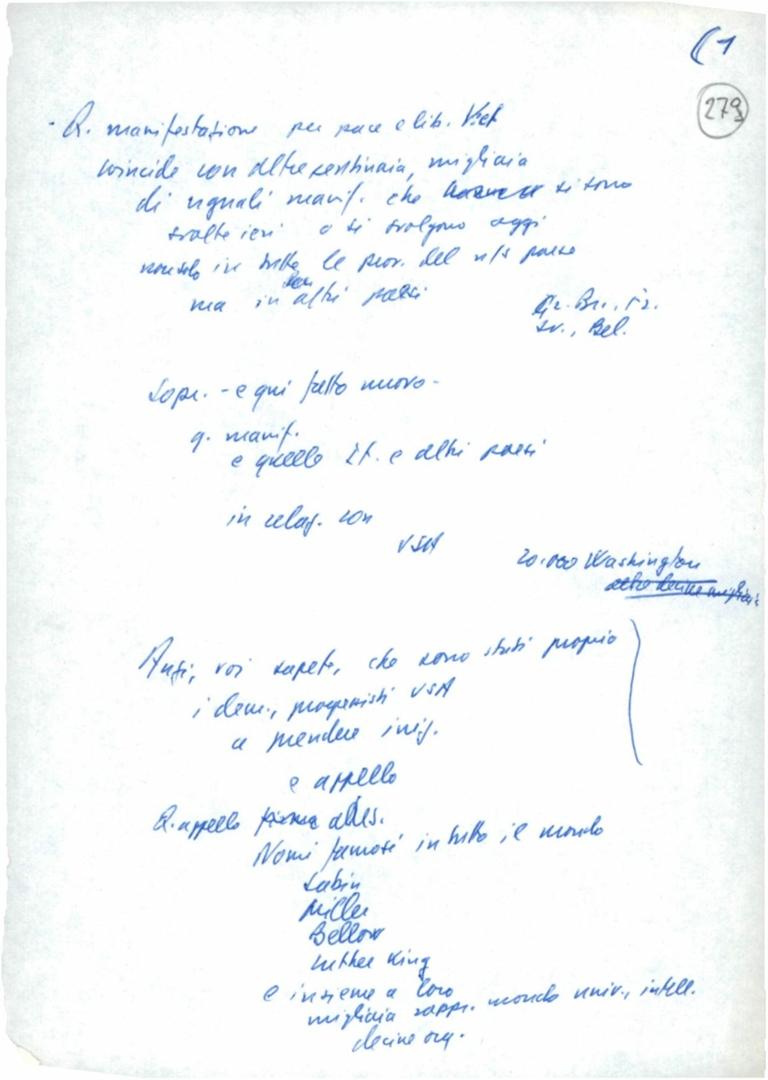 (1
279
- Q. manifestazione per pace e lib. Viet
coincide con altre centinaia, migliaia
di uguali manif. che si sono
svolte ieri o si svolgono oggi
non solo in tutte le prov. del n/s paese
ma in altri paesi
Gr. Br., Fr.
Sv., Bel.
Sopr. - e qui fatto nuovo -
q. manif.
e quelle It. e altri paesi
in relaz. con
USA
20.000 Washington
altre decine migliaia
Anzi, voi sapete, che sono stati proprio
i dem., progressisti USA
a prendere iniz.
e appello
Q. appello
Nomi famosi in tutto il mondo
Sabin
Miller
Bellow
Luther King
e insieme a loro
migliaia rappr. mondo univ., intell.
decine org.